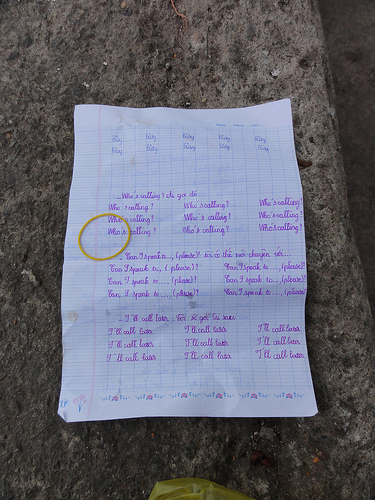 busy busy busy busy busy
busy busy busy busy busy
- Who's calling? ai gọi đó
Who's calling? Who's calling? Who's calling?
Who's calling? Who's calling? Who's calling?
Who's calling? Who's calling? Who's calling?
- Can I speak to..., (please)? tôi có thể nói chuyện với...
Can I speak to.., (please)? Can I speak to..., (please)?
Can I speak to..., (please)? Can I speak to..., (please)?
Can I speak to..., (please)? Can I speak to..., (please)
- I'll call later tôi sẽ gọi lại sau
I'll call later I'll call later I'll call later
I'll call later I'll call later I'll call later
I'll call later I'll call later I'll call later